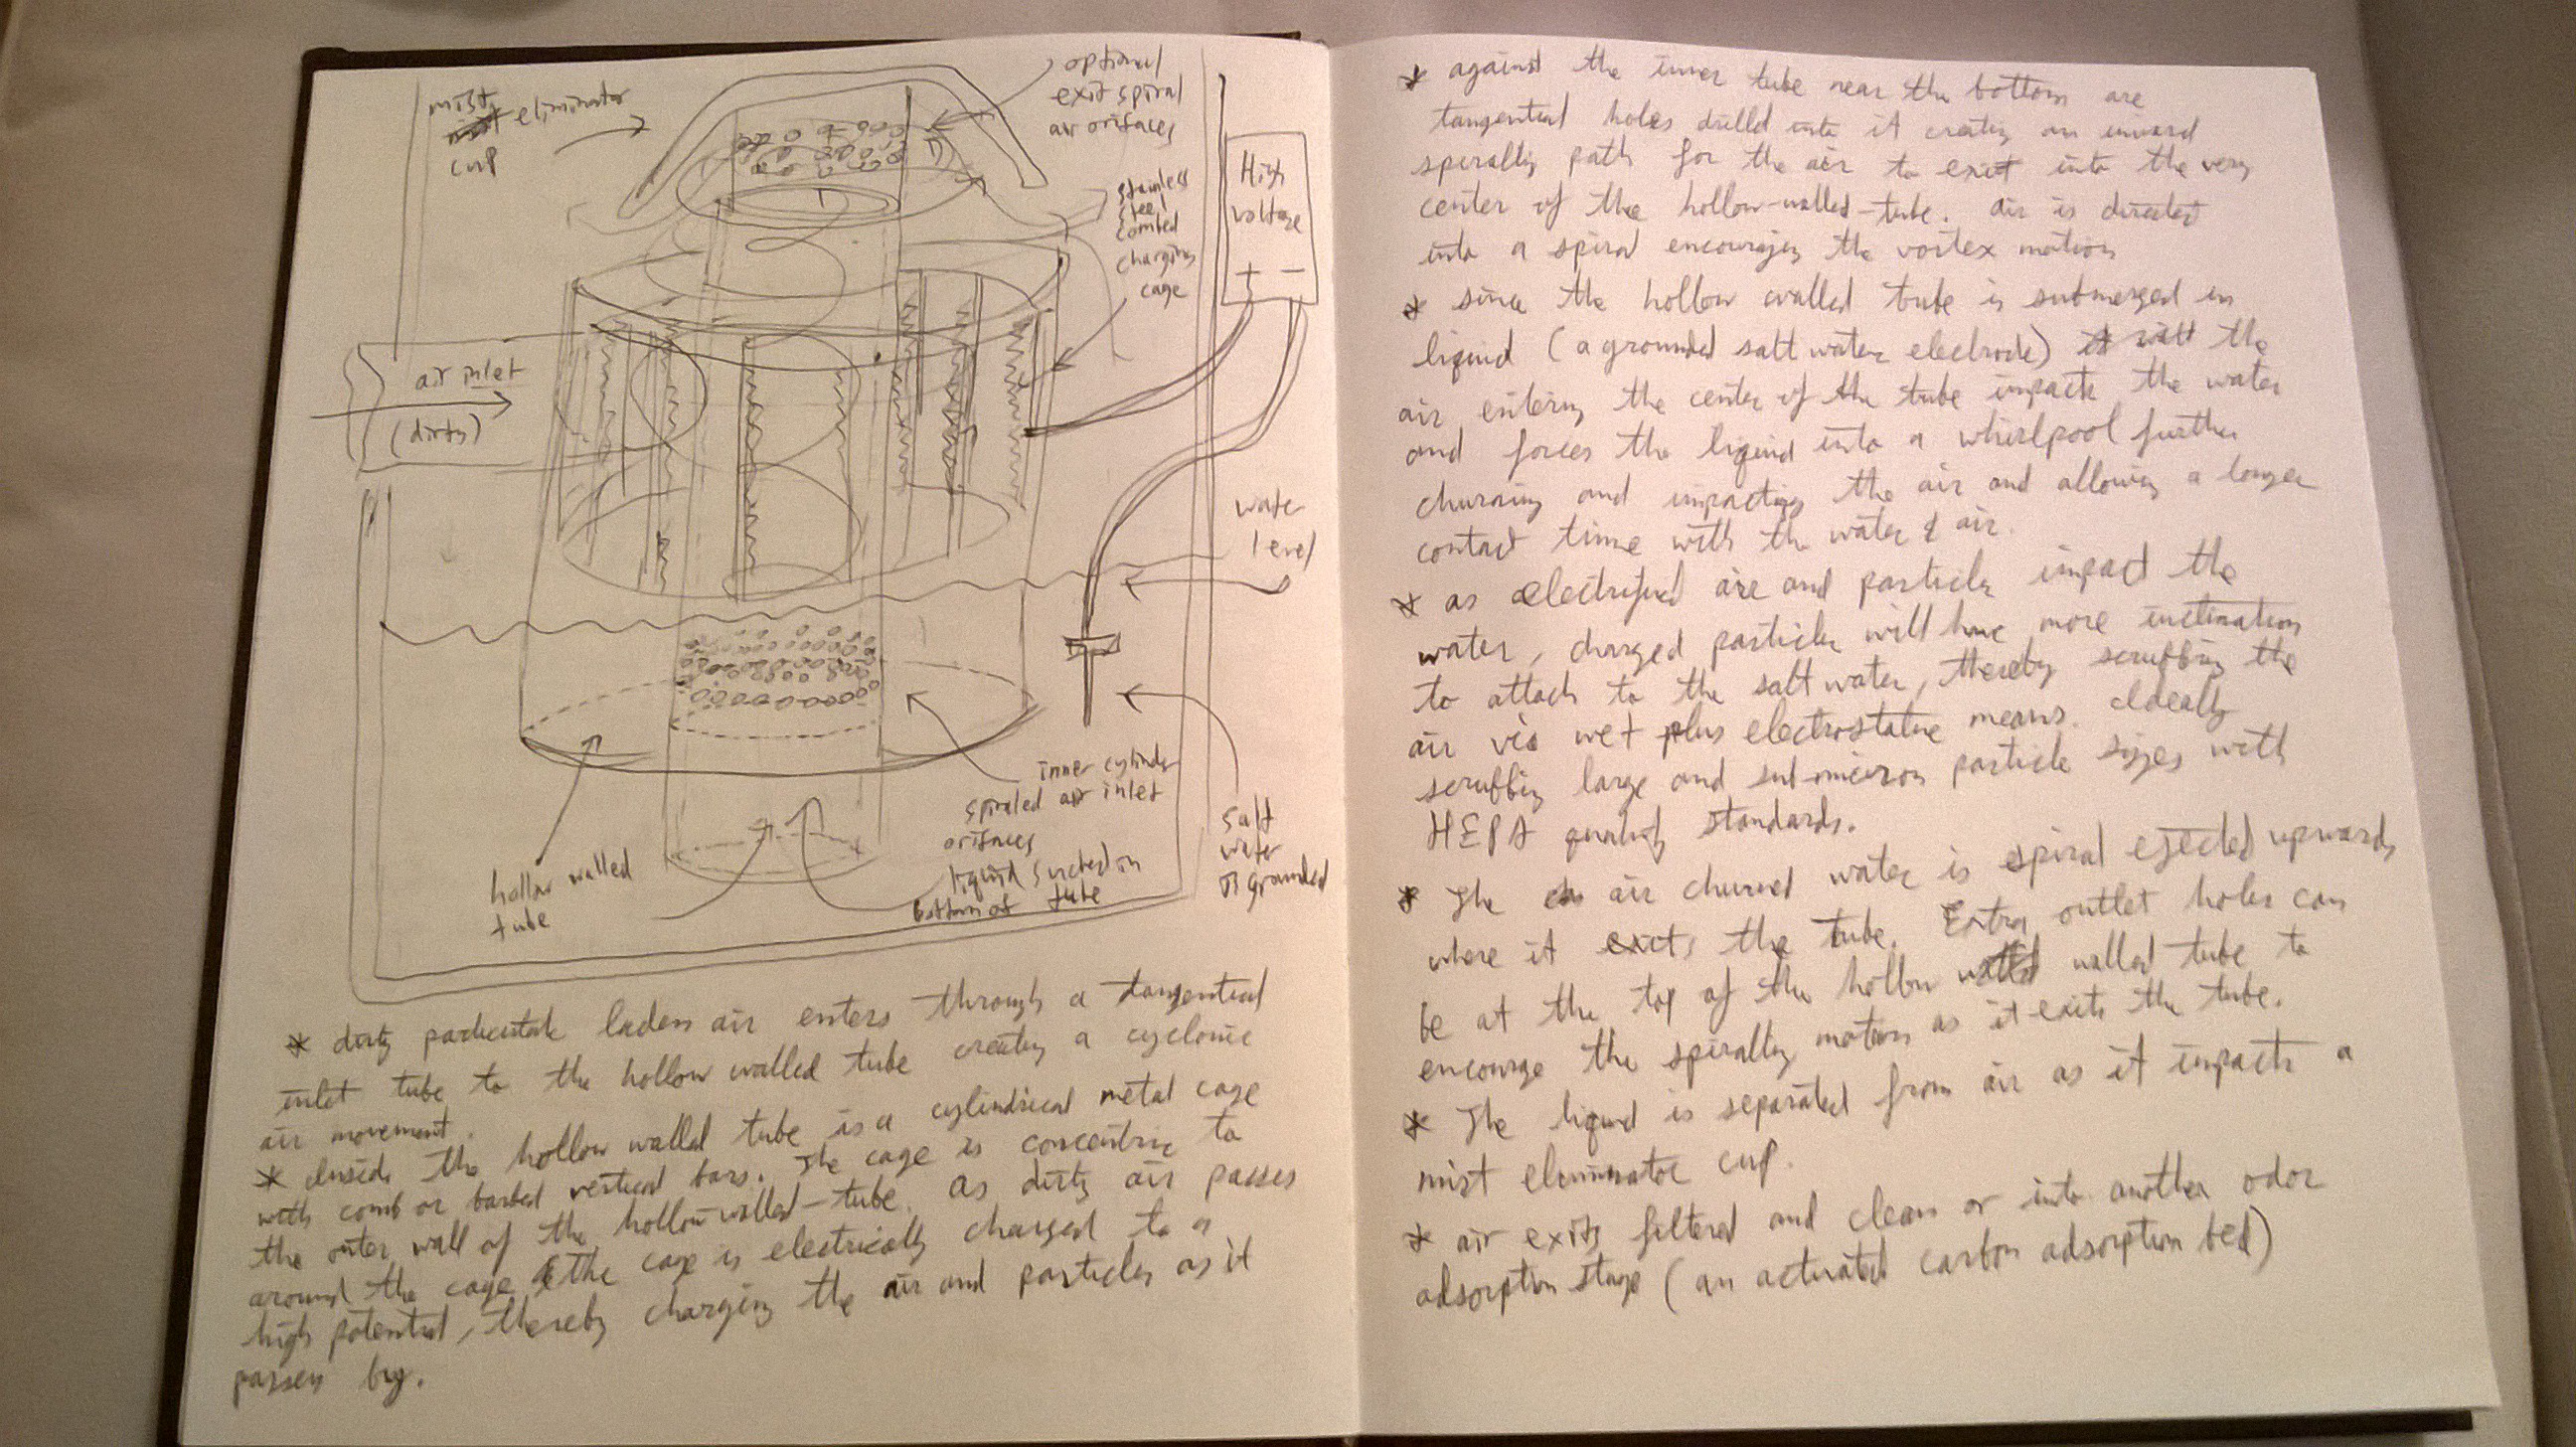 mist
eliminator
cup
optional
exit spiral
air orifaces
stainless
steel
combed
charging
cage
High
voltage
+ −
air inlet
(dirty)
water
level
inner cylinder
spiraled air inlet
orifaces
liquid sucked in
bottom of tube
salt
water
is grounded
hollow walled
tube
* dirty particulate laden air enters through a tangential
inlet tube to the hollow walled tube creating a cyclonic
air movement.
* Inside the hollow walled tube is a cylindrical metal cage
with comb or barbed vertical bars. The cage is concentric to
the outer wall of the hollow-walled-tube. as dirty air passes
around the cage the cage is electrically charged to a
high potential, thereby charging the air and particles as it
passes by.
* against the inner tube near the bottom are
tangential holes drilled into it creating an inward
spirally path for the air to exit into the very
center of the hollow-walled-tube. air is directed
into a spiral encouraging the vortex motion
* since the hollow walled tube is submerged in
liquid (a grounded salt water electrode) the
air entering the center of the tube impacts the water
and forces the liquid into a whirlpool further
churning and impacting the air and allowing a longer
contact time with the water & air.
* as electrified air and particles impact the
water, charged particles will have more inclination
to attach to the salt water, thereby scrubbing the
air via wet plus electrostatic means. Ideally
scrubbing large and sub-micron particle sizes with
HEPA quality standards.
* The air churned water is spiral ejected upwards
where it exits the tube. Extra outlet holes can
be at the top of the hollow walled tube to
encourage the spiralling motion as it exits the tube.
* The liquid is separated from air as it impacts a
mist eliminator cup.
* air exits filtered and clean or into another odor
adsorption stage (an activated carbon adsorption bed)